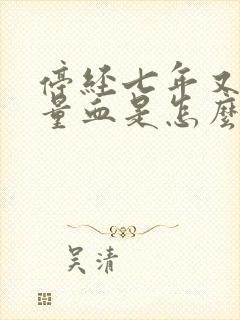 停经七年又
量血是怎麽
吴清